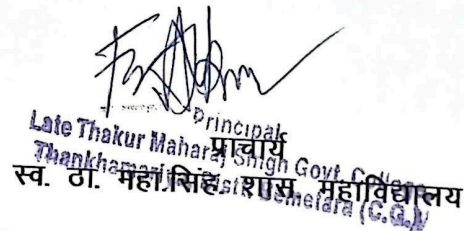 Principal
Late Thakur Maharaj Singh Govt. College
प्राचार्य
Thankhamaria Distt. Bemetara (C.G.)
स्व. ठा. महा.सिंह. शास. महाविद्यालय